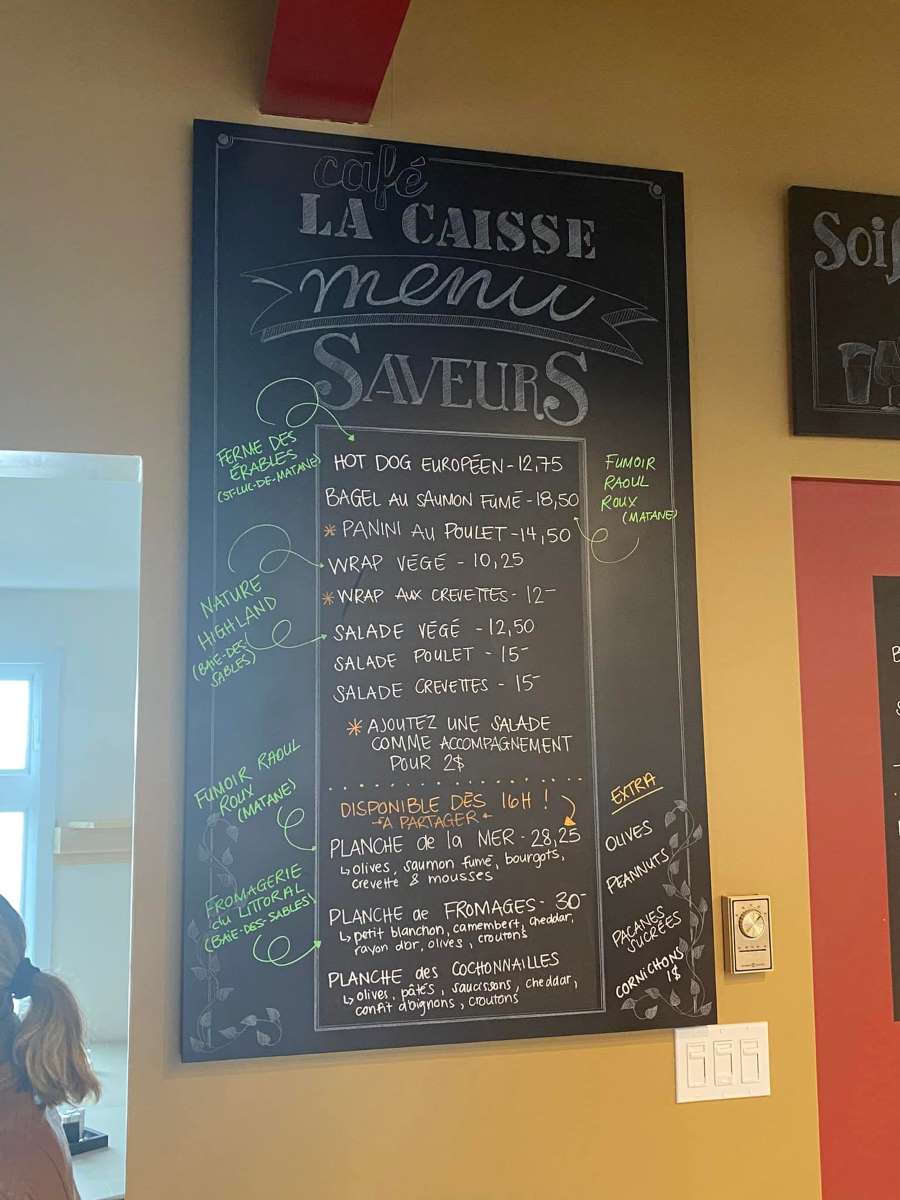 café
LA CAISSE
menu
SAVEURS
FERME DES
ÉRABLES
(ST-LUC-DE-MATANE)
HOT DOG EUROPÉEN - 12,75
BAGEL AU SAUMON FUMÉ - 18,50
* PANINI AU POULET - 14,50
WRAP VÉGÉ - 10,25
* WRAP AUX CREVETTES - 12-
SALADE VÉGÉ - 12,50
SALADE POULET - 15-
SALADE CREVETTES - 15-
* AJOUTEZ UNE SALADE
COMME ACCOMPAGNEMENT
POUR 2$
FUMOIR
RAOUL
ROUX
(MATANE)
NATURE
HIGHLAND
(BAIE-DES-
SABLES)
DISPONIBLE DÈS 16H !
- À PARTAGER -
FUMOIR RAOUL
ROUX
(MATANE)
PLANCHE de la MER - 28,25
↳ olives, saumon fumé, bourgots,
crevette & mousses
FROMAGERIE
du LITTORAL
(BAIE-DES-SABLES)
PLANCHE de FROMAGES - 30-
↳ petit blanchon, camembert, cheddar,
rayon d'or, olives, croutons
PLANCHE des COCHONNAILLES
↳ olives, pâtés, saucissons, cheddar,
confit d'oignons, croutons
EXTRA
OLIVES
PEANNUTS
PACANES
SUCRÉES
CORNICHONS
1$
Soif